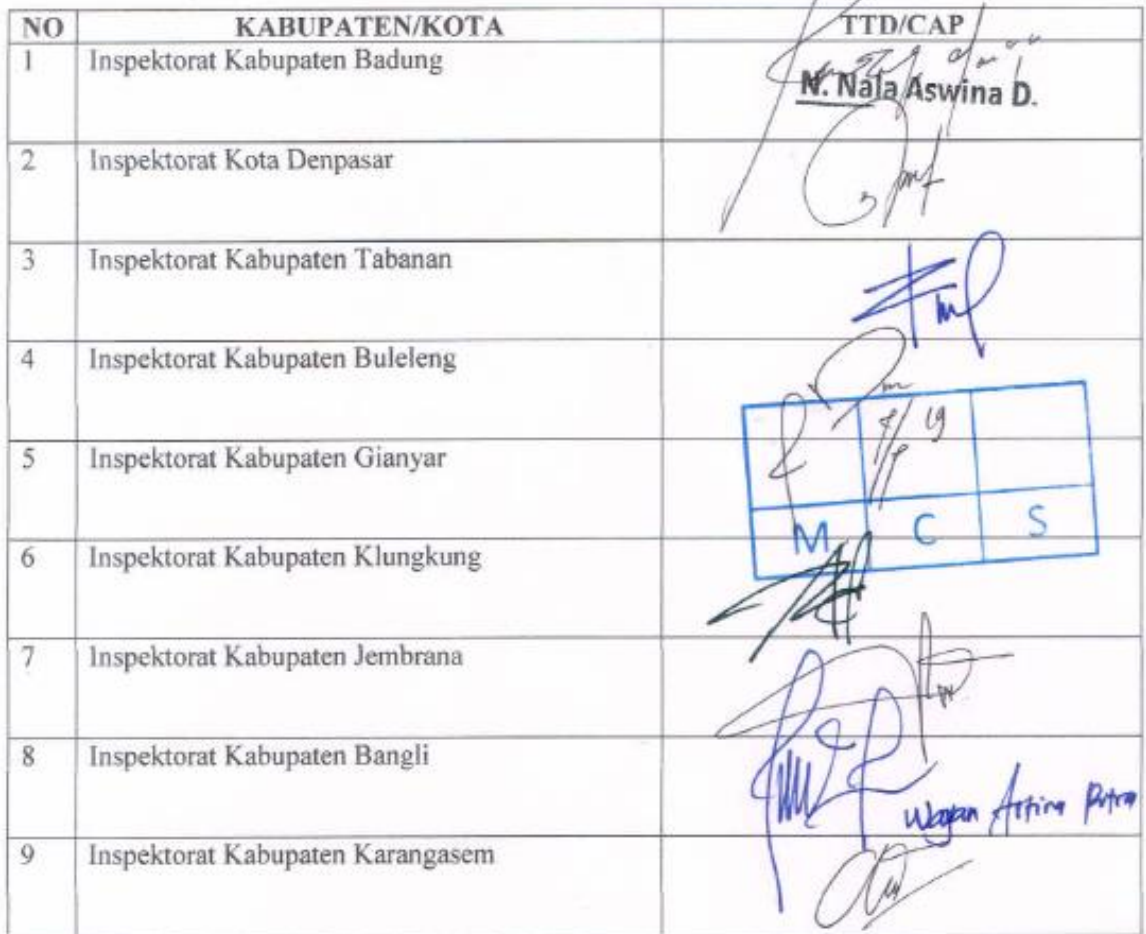 NO KABUPATEN/KOTA TTD/CAP
1 Inspektorat Kabupaten Badung
N. Nala Aswina D.
2 Inspektorat Kota Denpasar
3 Inspektorat Kabupaten Tabanan
4 Inspektorat Kabupaten Buleleng
19
5 Inspektorat Kabupaten Gianyar
M C S
6 Inspektorat Kabupaten Klungkung
7 Inspektorat Kabupaten Jembrana
8 Inspektorat Kabupaten Bangli
Wayan Artina Putra
9 Inspektorat Kabupaten Karangasem